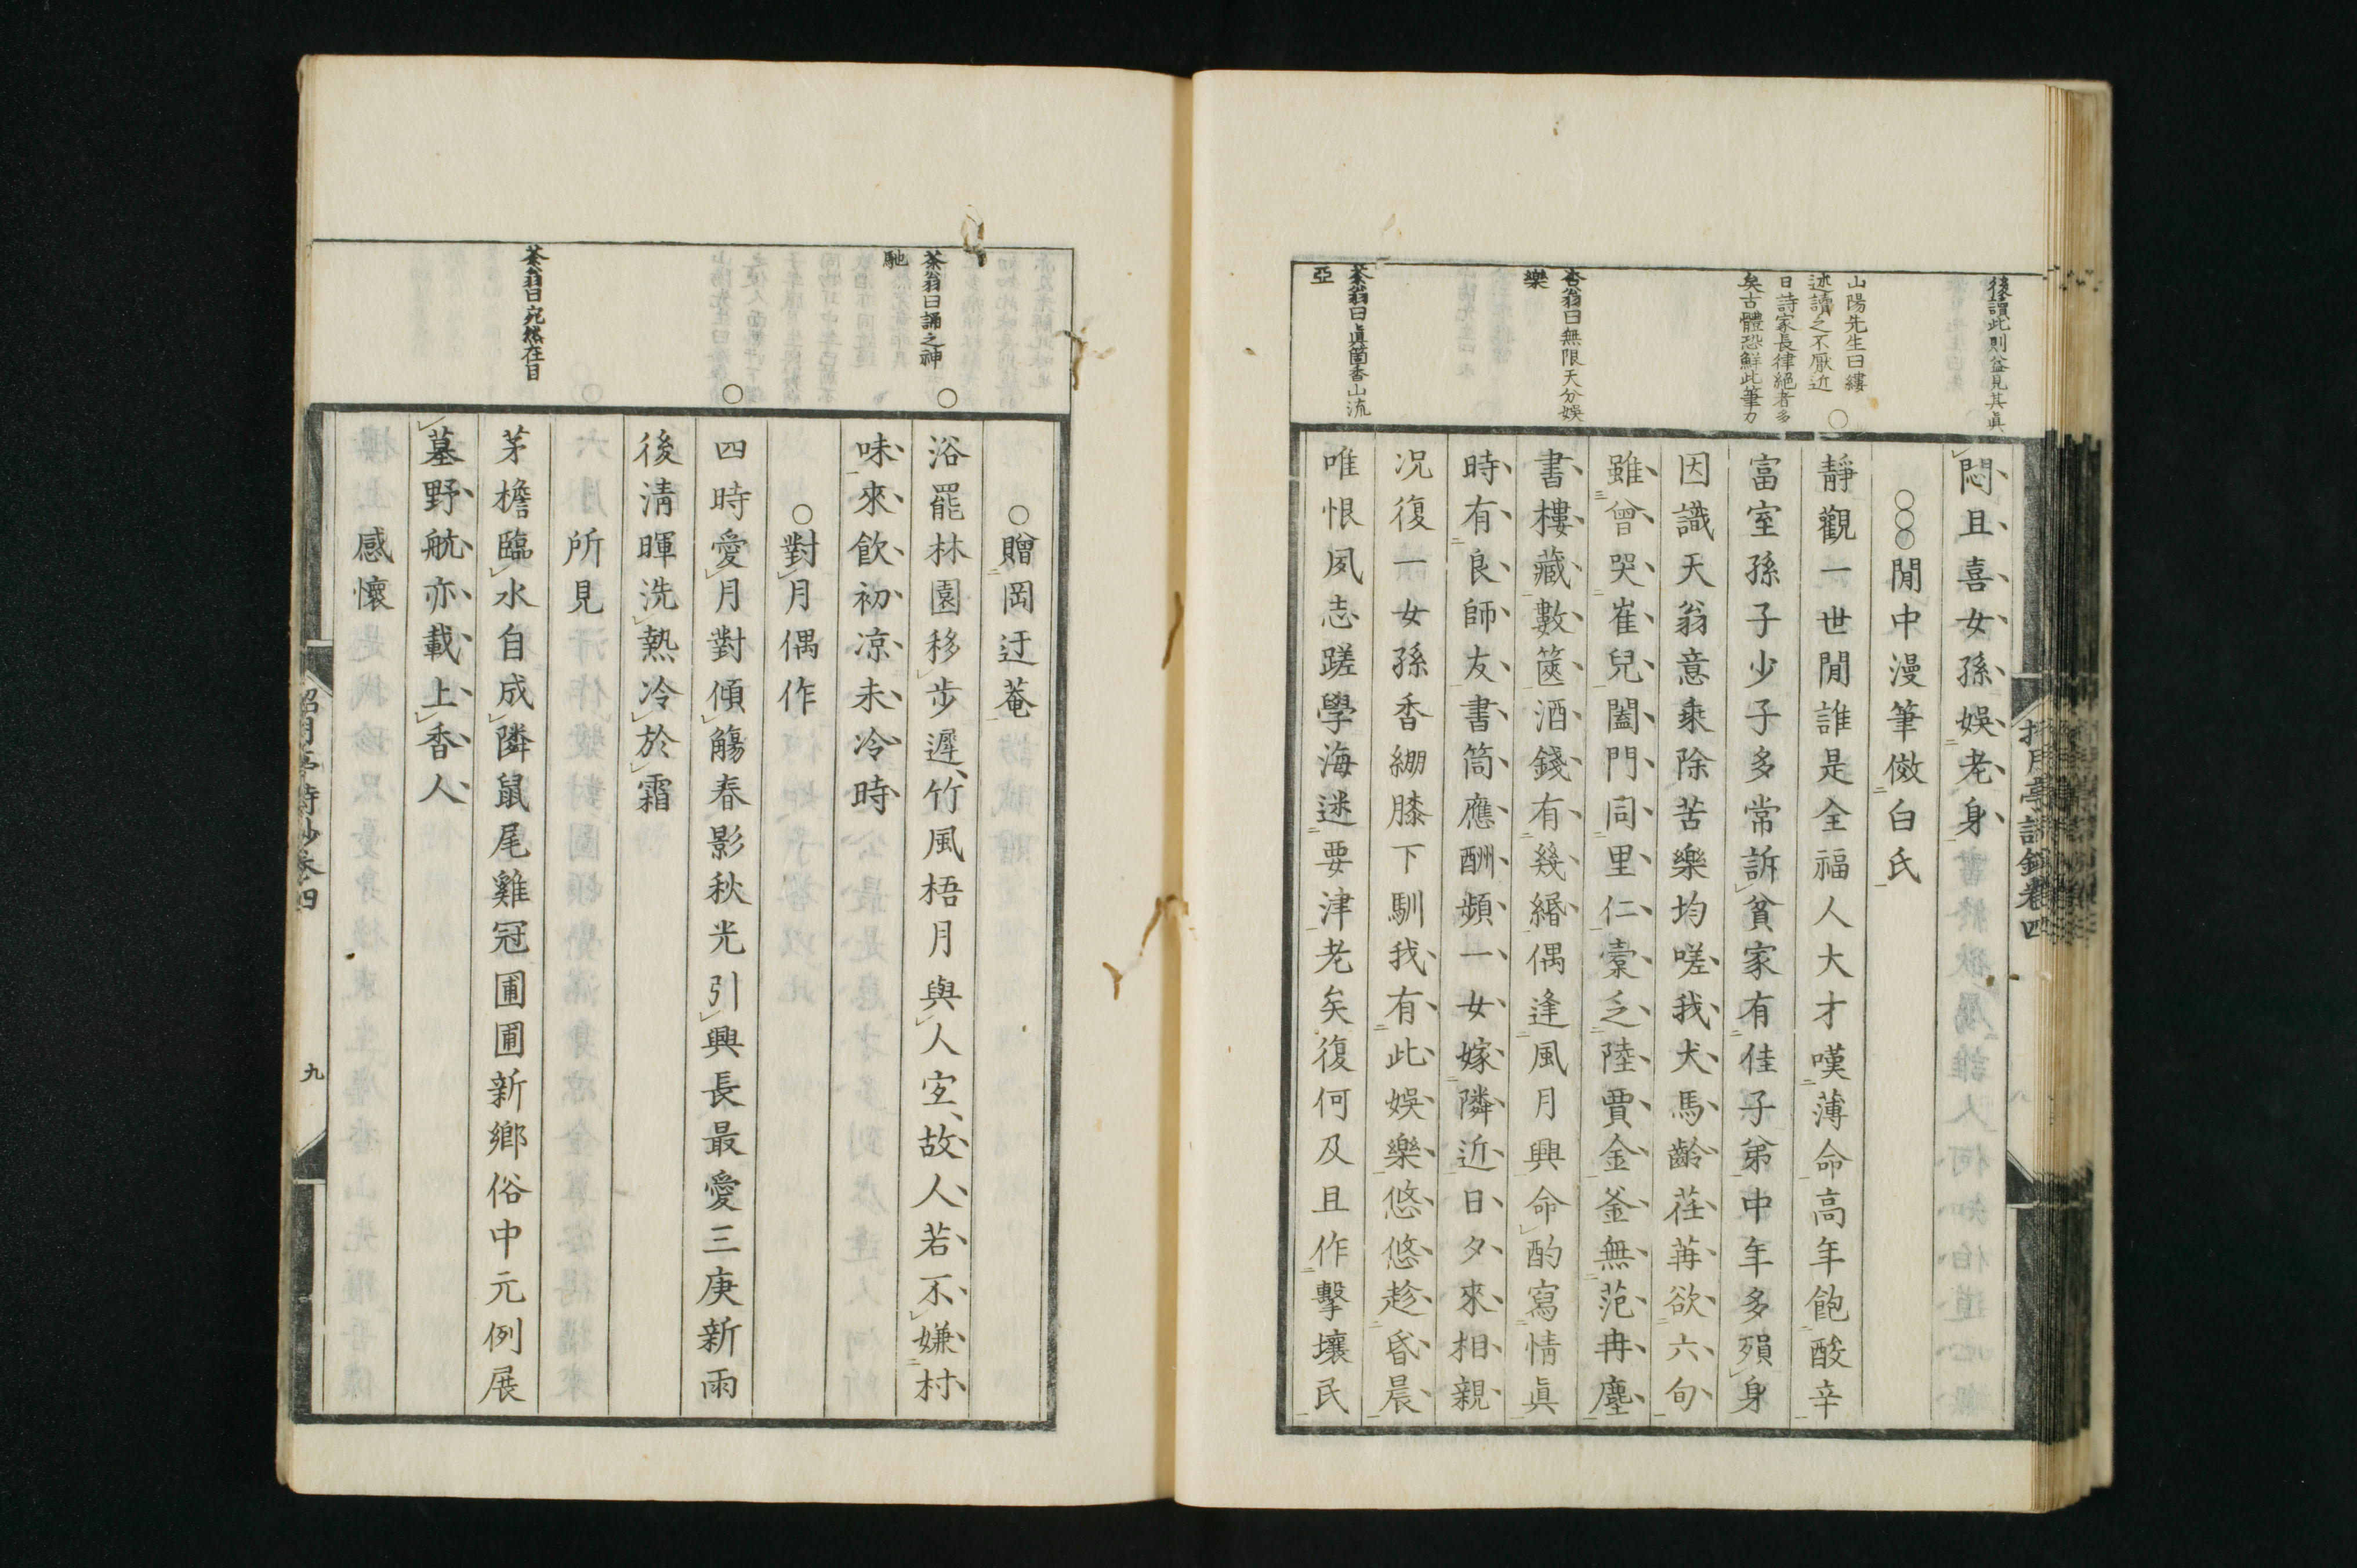 後謂此則益見其眞
山陽先生曰縷
述讀之不厭近
日詩家長律絕者多
矣古體恐鮮此筆力
杏翁曰無限天分娛
樂
茶翁曰眞箇香山流
亞
悶且喜女孫娛老身
○○○閒中漫筆傚白氏
靜觀一世閒誰是全福人大才嘆薄命高年飽酸辛
富室孫子少子多常訴貧家有佳子弟中年多殞身
因識天翁意乘除苦樂均嗟我犬馬齡荏苒欲六旬
雖曾哭崔兒闔門同里仁橐乏陸賈金釜無范冉塵
書樓藏數篋酒錢有幾緡偶逢風月興命酌寫情眞
時有良師友書筒應酬頻一女嫁隣近日夕來相親
况復一女孫香綳膝下馴我有此娛樂悠悠趁昏晨
唯恨夙志蹉學海迷要津老矣復何及且作擊壤民
卷四
茶翁曰誦之神
馳
茶翁曰宛然在目
○贈岡迂菴
浴罷林園移步遲竹風梧月與人宜故人若不嫌村
味來飲初凉未冷時
○對月偶作
四時愛月對傾觴春影秋光引興長最愛三庚新雨
後清暉洗熱冷於霜
所見
茅檐臨水自成隣鼠尾雞冠圃圃新鄉俗中元例展
墓野航亦載上香人
感懷
九